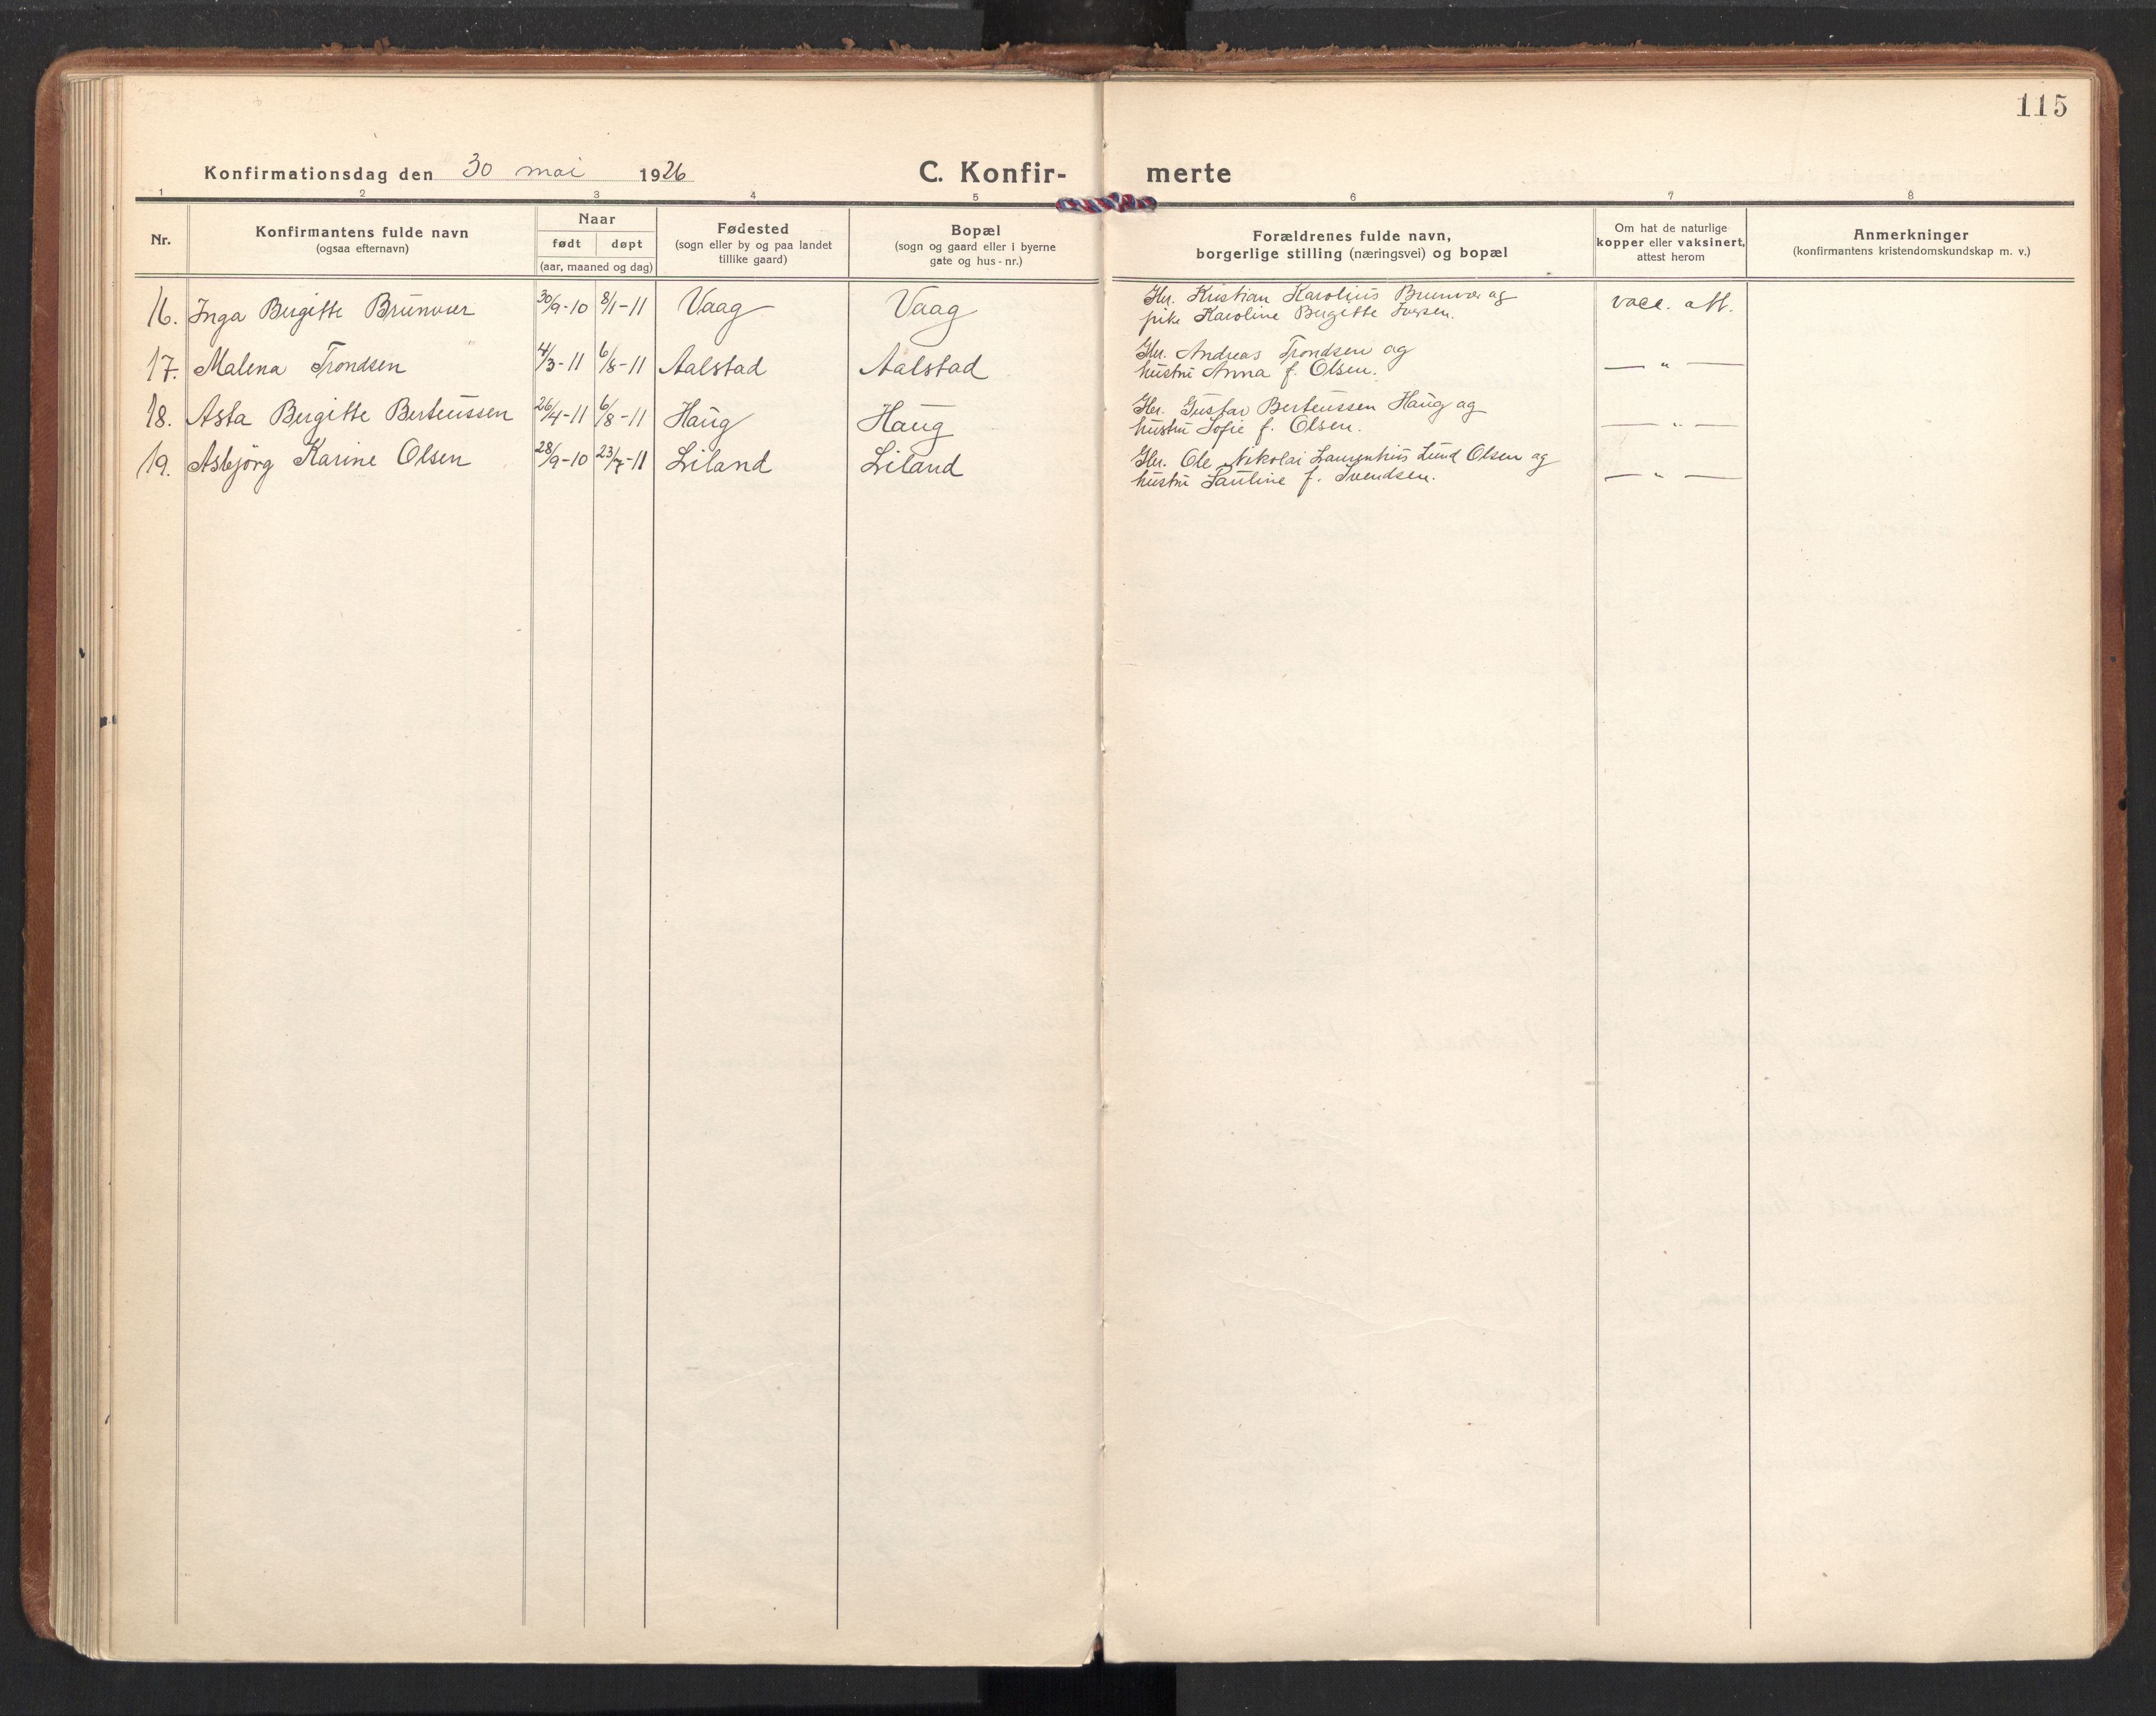 115
Konfirmationsdag den 30 mai 1926
C. Konfir-merte
1 2 3 4 5 6 7 8
Nr.
Konfirmantens fulde navn
(ogsaa efternavn)
Naar
født døpt
(aar, maaned og dag)
Fødested
(sogn eller by og paa landet
tillike gaard)
Bopæl
(sogn og gaard eller i byerne
gate og hus-nr.)
Forældrenes fulde navn,
borgerlige stilling (næringsvei) og bopæl
Om hat de naturlige
kopper eller vaksinert,
attest herom
Anmerkninger
(konfirmantens kristendomskundskap m. v.)
16. Inga Bergitte Brunvær 30/9-10 8/1-11 Vaag Vaag Gbr. Kristian Karolius Brunvær og vacc. att.
pike Karoline Bergitte Iversen.
17. Malena Trondsen 4/3-11 6/8-11 Aalstad Aalstad Gbr. Andreas Trondsen og
hustru Anna f. Olsen. — " —
18. Asta Bergitte Berteussen 26/4-11 6/8-11 Haug Haug Gbr. Gustav Berteussen Haug og
hustru Sofie f. Olsen. — " —
19. Asbjörg Karine Olsen 28/9-10 23/7-11 Liland Liland Gbr. Ole Nikolai Laurentius Lund Olsen og
hustru Pauline f. Svendsen. — " —